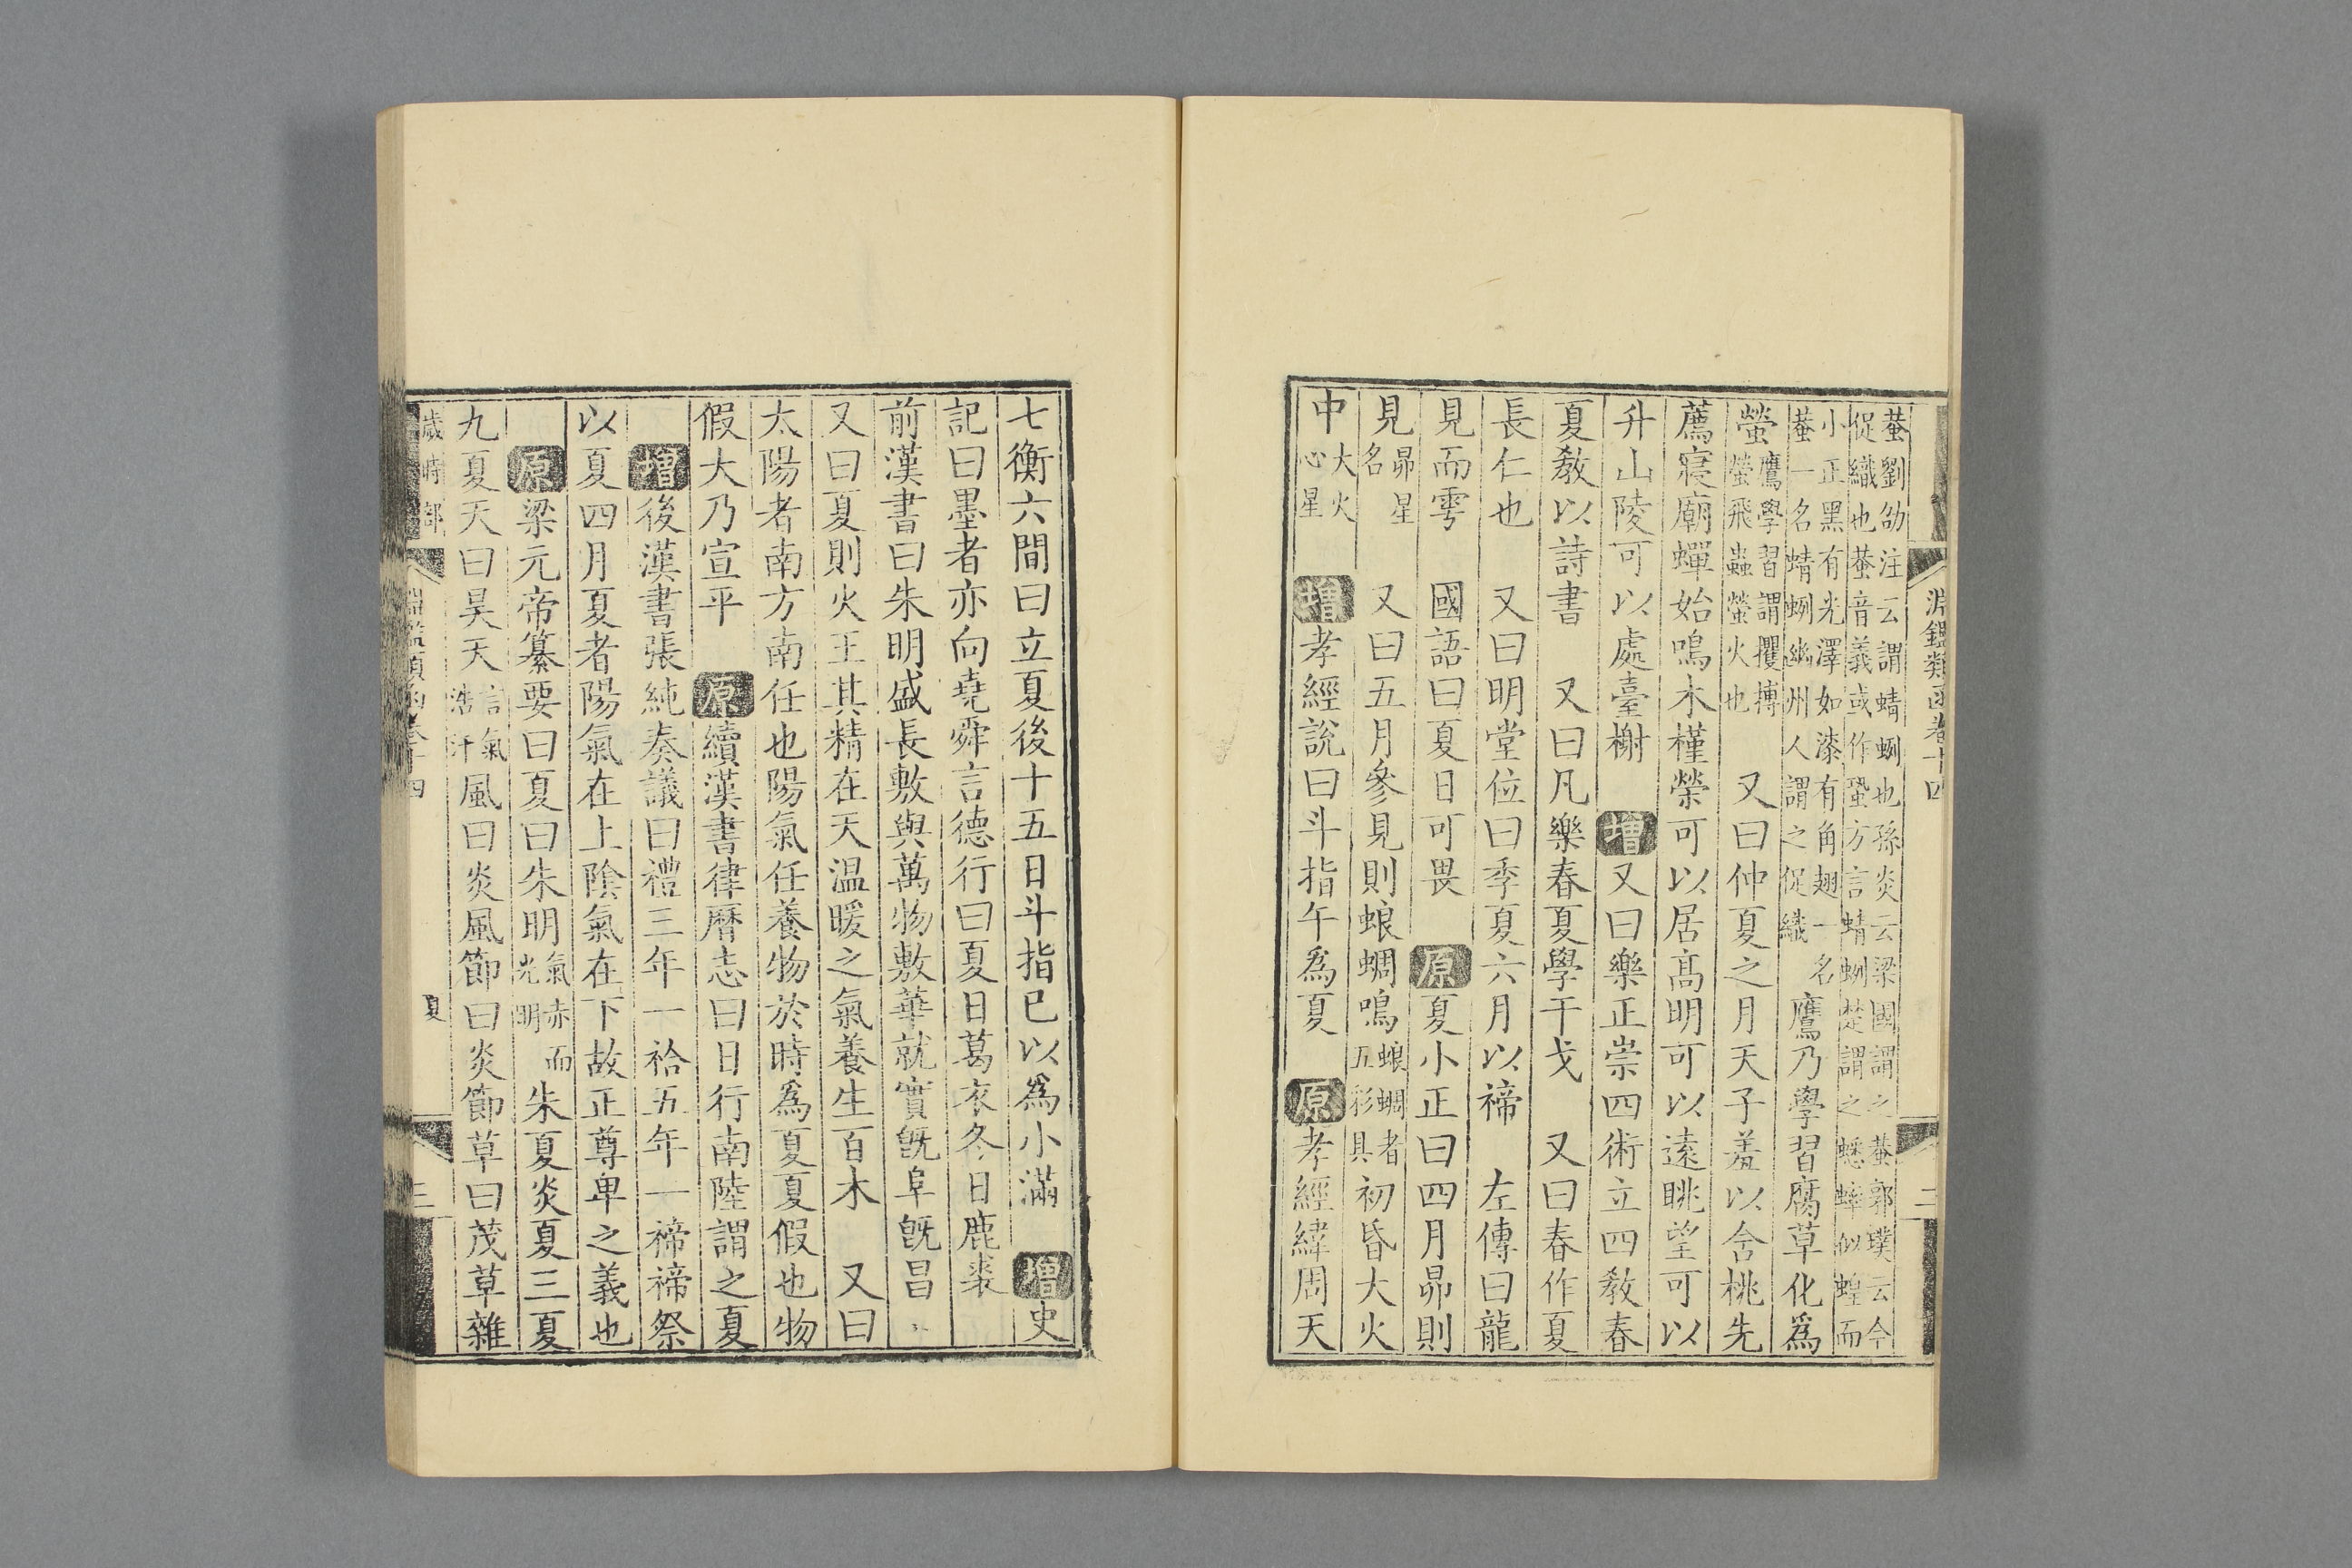 淵鑑類函卷十四
二
蛬劉劭注云謂蜻蛚也孫炎云梁國謂之蛬郭璞云今
促織也蛬音義或作蛩方言蜻蛚楚謂之蟋蟀似蝗而
小正黑有光澤如漆有角翅一名
蛬一名蜻蛚幽州人謂之促織
鷹乃學習腐草化爲
螢
鷹學習謂攫搏
螢飛蟲螢火也
又曰仲夏之月天子羞以含桃先
薦寢廟蟬始鳴木槿榮可以居髙明可以遠眺望可以
升山陵可以處臺榭 增又曰樂正崇四術立四教春
夏教以詩書 又曰凡樂春夏學干戈 又曰春作夏
長仁也 又曰明堂位曰季夏六月以禘 左傳曰龍
見而雩 國語曰夏日可畏 原夏小正曰四月昴則
見
昴星
名
又曰五月參見則蜋蜩鳴
蜋蜩者
五彩具
初昏大火
中
大火
心星
增孝經說曰斗指午爲夏 原孝經緯周天
七衡六間曰立夏後十五日斗指巳以爲小滿 增史
記曰墨者亦向堯舜言德行曰夏日葛衣冬日鹿裘
前漢書曰朱明盛長敷與萬物敷華就實旣阜旣昌
又曰夏則火王其精在天温暖之氣養生百木 又曰
太陽者南方南任也陽氣任養物於時爲夏夏假也物
假大乃宣平 原續漢書律曆志曰日行南陸謂之夏
增後漢書張純奏議曰禮三年一祫五年一禘禘祭
以夏四月夏者陽氣在上陰氣在下故正尊卑之義也
原梁元帝纂要曰夏曰朱明
氣赤而
光明
朱夏炎夏三夏
九夏天曰昊天
言氣
浩汗
風曰炎風節曰炎節草曰茂草雜
歲時部
淵鑑類函卷十四
夏
三